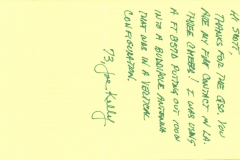 Hi Scott,
Thanks for the QSO, you
are my first contact in LA.
Three cheers! I was using
a FT 857D putting out 100W
into a Buddipole antenna
that was in a vertical
configuration.
73, Joe Kelly